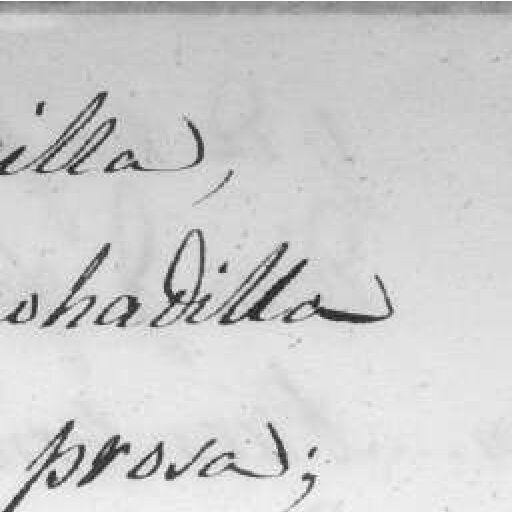 illa,
ohadilla
prosa;